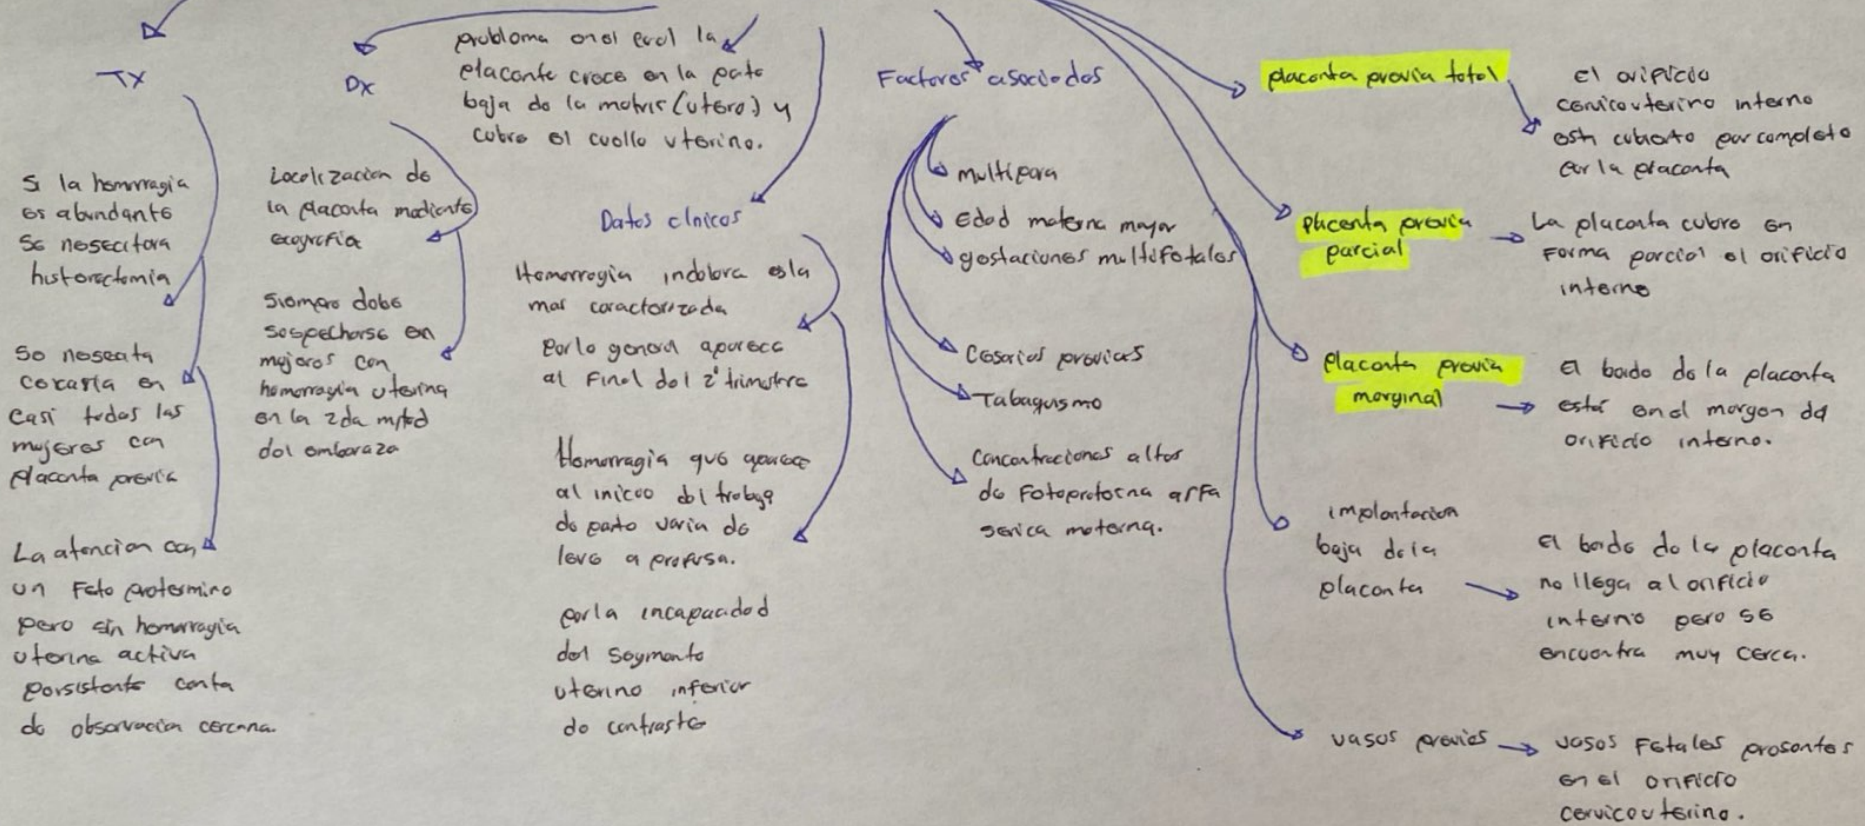 TX
si la hemorragia
es abundante
se nesecitara
histerectomia
se neseata
cesaria en
casi todas las
mujeres con
placenta previa
La atencion con
un Feto pretermino
pero sin hemorragia
uterina activa
persistente conta
de observacion cercana.
Dx
Localizacion de
la placenta mediante
ecografia
siempre debe
sospecharse en
mujeres con
hemorragia uterina
en la 2da mitad
del embarazo
problema en el cual la
placente crece en la parte
baja de la matris (utero) y
cubre el cuello uterino.
Datos clnicos
Hemorragia indolora es la
mas caracterizada
Por lo general aparece
al Final del 2° trimestre
Hemorragia que aparece
al inicio del trabajo
de parto varia de
leve a profusa.
por la incapacidad
del segmento
uterino inferior
de contraste
Factores asociados
multipara
edad materna mayor
gestaciones multifetales
Cesarias previas
Tabaquismo
Concentraciones altas
de Fetoproteina alfa
serica materna.
placenta previa total
el orificio
cervicouterino interno
esta cubierto por completo
por la placenta
placenta previa
parcial
La placenta cubre en
Forma parcial el orificio
interno
placenta previa
marginal
el borde de la placenta
está en el margen del
orificio interno.
implantacion
baja de la
placenta
el borde de la placenta
no llega al orificio
interno pero se
encuentra muy cerca.
vasos previos
vasos Fetales presentes
en el orificio
cervicouterino.